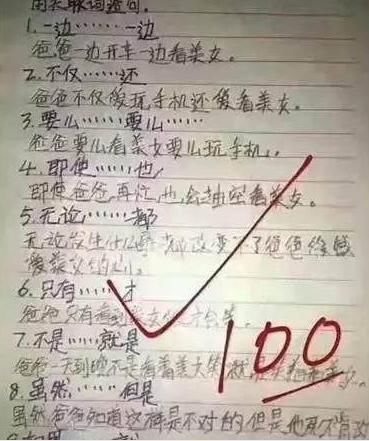 用关联词造句。
1.一边……一边
爸爸一边开车一边看美女。
2.不仅……还
爸爸不仅爱玩手机还爱看美女。
3.要么……要么……
爸爸要么看美女要么玩手机。
4.即使……也
即使爸爸再忙,也会抽空看美女。
5.无论……都
无论发生什么事都改变不了爸爸
爱美女的心。
6.只有……才
爸爸只有看到美女
7.不是……就是
爸爸一天到晚不是看着美女笑就是
8.虽然……但是
虽然爸爸知道这样是不对的,但是他
100